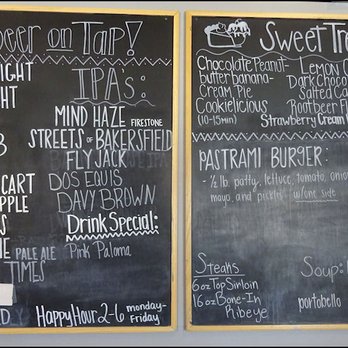 Beer on Tap!
IGHT
HT
IPA's:
MIND HAZE FIRESTONE
STREETS OF BAKERSFIELD
FLY JACK
CART
DOS EQUIS
APPLE
DAVY BROWN
S
Drink Special:
NE PALE ALE
Pink Paloma
TIMES
D
Happy Hour 2-6 monday-
Friday
Sweet Tre
Chocolate Peanut-
butter banana-
Cream Pie
Cookielicious
(10-15min)
Lemon C
Dark Choco
Salted Ca
Rootbeer Fl
Strawberry Cream
PASTRAMI BURGER:
- 1/2 lb. patty, lettuce, tomato, onion
mayo, and pickles w/one side
Steaks
6oz Top Sirloin
16oz Bone-In
Ribeye
Soup:
portobello